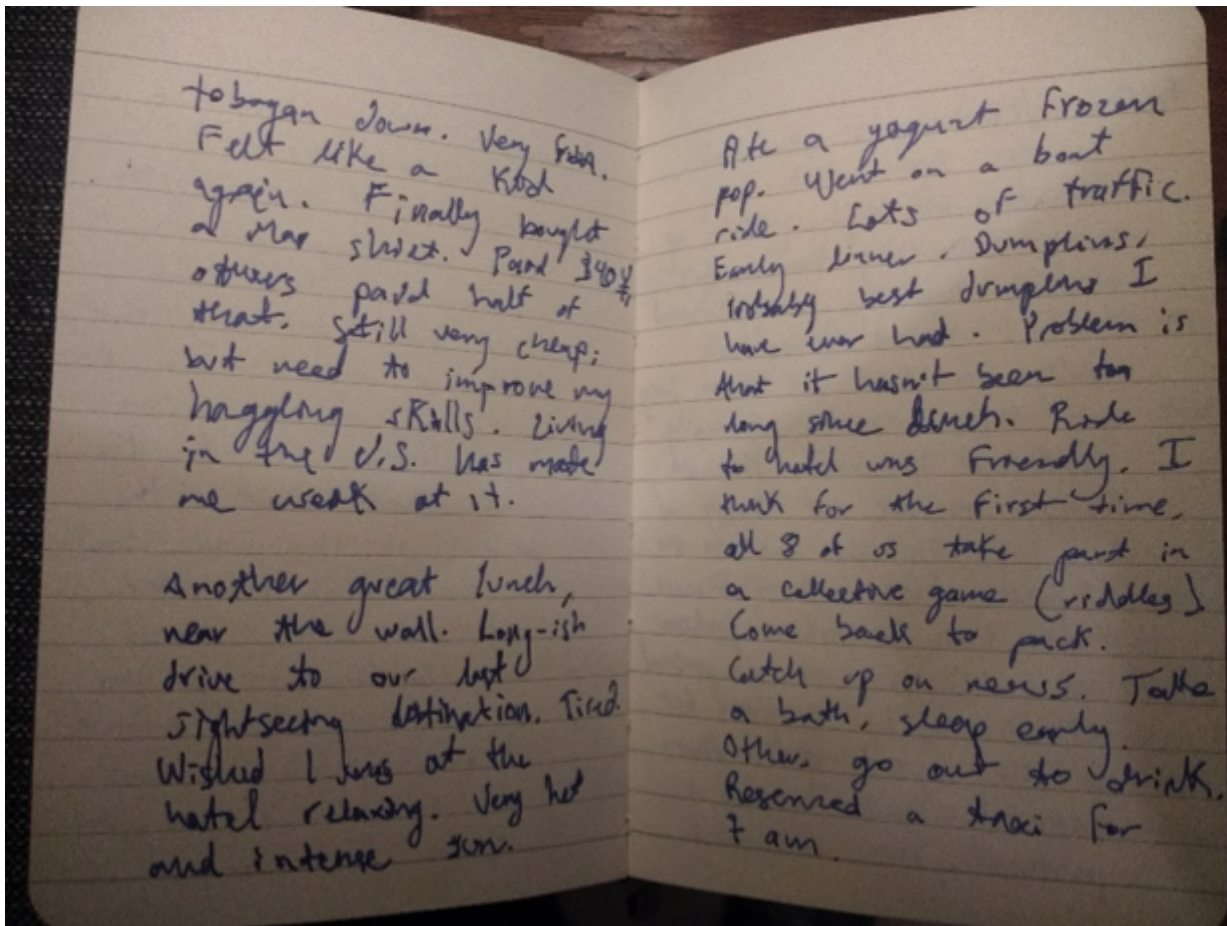 tobogan down. Very fun.
Felt like a kid
again. Finally bought
a Mao shirt. Paid
others paid half of
that. Still very cheap,
but need to improve my
haggling skills. Living
in the U.S. has made
me weak at it.
Another great lunch,
near the wall. Long-ish
drive to our last
sightseeing destination. Tired.
Wished I was at the
hotel relaxing. Very hot
and intense sun.
Ate a yogurt frozen
pop. Went on a boat
ride. Lots of traffic.
Early dinner. Dumplins,
Probably best dumplins I
have ever had. Problem is
that it hasn't been too
long since lunch. Ride
to hotel was friendly. I
think for the first time,
all 8 of us take part in
a collective game (riddles)
Come back to pack.
Catch up on news. Take
a bath, sleep early.
Others go out to drink.
Reserved a taxi for
7 am.